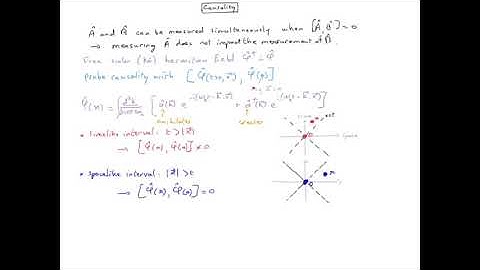 Causality
Â and B̂ can be measured simultaneously when [Â, B̂] = 0
→ measuring Â does not impact the measurement of B̂.
Free scalar (KG) hermitian field φ̂† = φ̂
probe causality with [φ̂(t>0, x⃗), φ̂(0)]
annihilates
creates
• timelike interval: t > |x⃗|
→ [φ̂(x), φ̂(0)] ≠ 0
space
• spacelike interval: |x⃗| > t
→ [φ̂(x), φ̂(0)] = 0